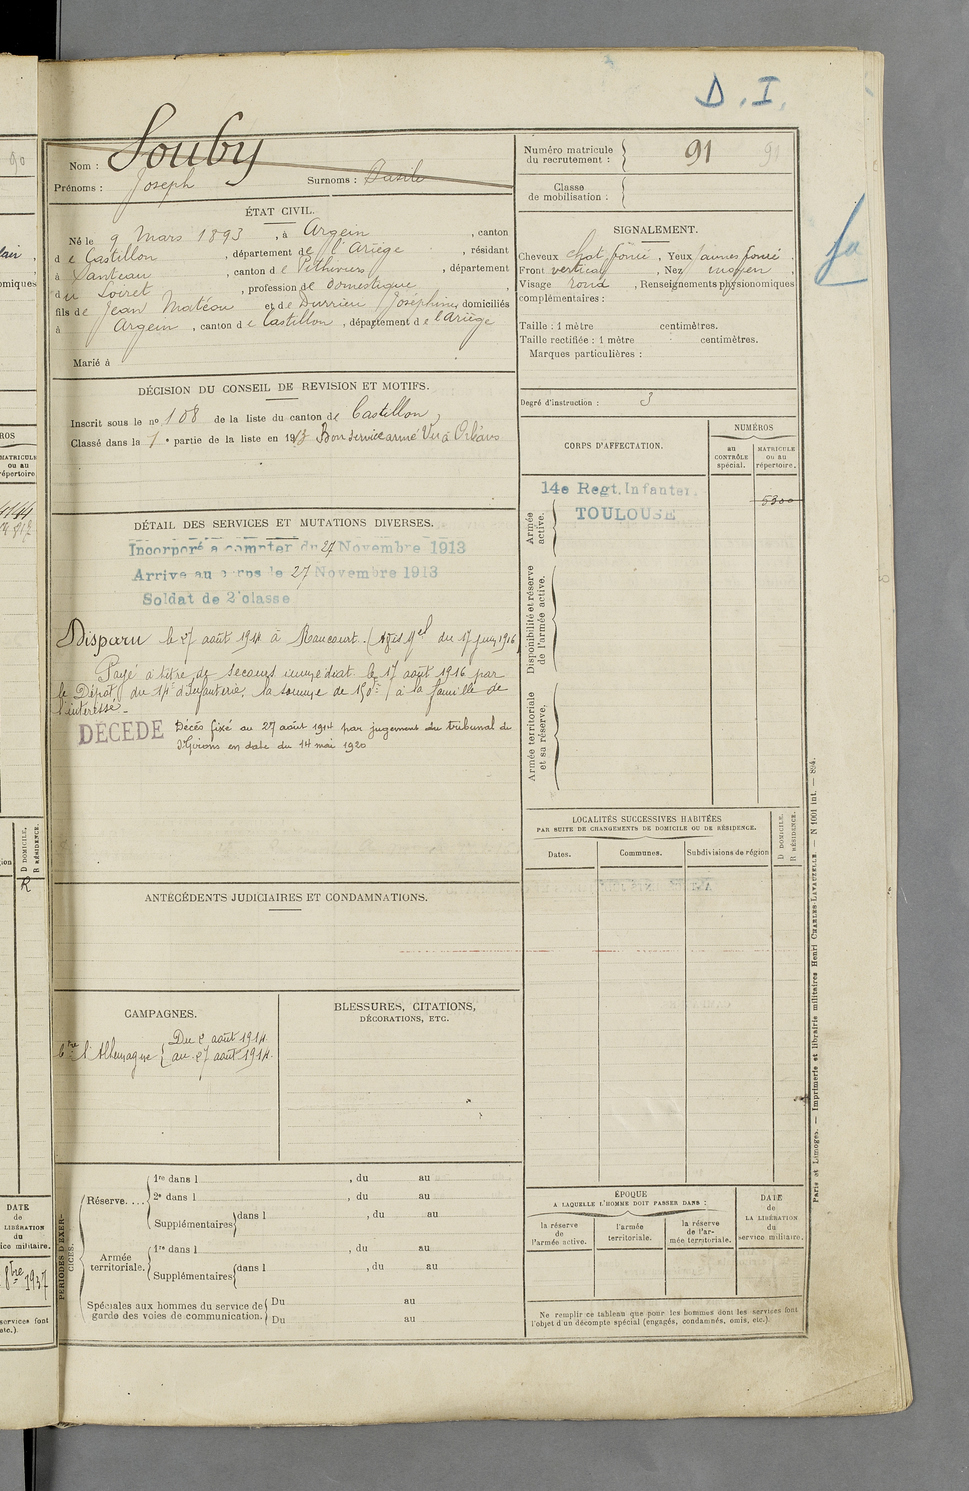 D. I.
Souby
Nom :
Prénoms : Joseph Surnoms : Basile
Numéro matricule du recrutement : 91
Classe de mobilisation :
ÉTAT CIVIL.
Né le 9 Mars 1893, à Argein, canton
de Castillon, département de l'Ariège, résidant
à Santeau, canton de Pithiviers, département
du Loiret, profession de domestique,
fils de Jean Matéou et de Durrieu Joséphine domiciliés
à Argein, canton de Castillon, département de l'Ariège
Marié à
SIGNALEMENT.
Cheveux chat. foncé, Yeux jaunes foncé.
Front vertical, Nez moyen
Visage rond, Renseignements physionomiques
complémentaires :
Taille : 1 mètre centimètres.
Taille rectifiée : 1 mètre centimètres.
Marques particulières :
Degré d'instruction : 3
DÉCISION DU CONSEIL DE REVISION ET MOTIFS.
Inscrit sous le no 108 de la liste du canton de Castillon,
Classé dans la 1e partie de la liste en 1913 Bon service armé Vu à Orléans
CORPS D'AFFECTATION.
NUMÉROS
au CONTRÔLE spécial.
MATRICULE ou au répertoire.
14e Regt. Infanter.
TOULOUSE
5300
Armée active.
Disponibilité et réserve de l'armée active.
Armée territoriale et sa réserve.
DÉTAIL DES SERVICES ET MUTATIONS DIVERSES.
Incorporé à compter du 27 Novembre 1913
Arrivé au corps le 27 Novembre 1913
Soldat de 2e classe
Disparu le 27 août 1914 à Raucourt. (Avis Mel du 17 juin 1916)
Payé à titre de secours immédiat le 17 août 1916 par
le Dépôt du 14e d'Infanterie, la somme de 150f à la famille de
l'intéressé.
DÉCÉDÉ Décès fixé au 27 août 1914 par jugement du tribunal de
St Girons en date du 14 mai 1920
LOCALITÉS SUCCESSIVES HABITÉES
PAR SUITE DE CHANGEMENTS DE DOMICILE OU DE RÉSIDENCE.
Dates. Communes. Subdivisions de région
D DOMICILE.
R RÉSIDENCE.
ANTÉCÉDENTS JUDICIAIRES ET CONDAMNATIONS.
CAMPAGNES.
l'Allemagne { Du 2 août 1914
au 27 août 1914.
BLESSURES, CITATIONS,
DÉCORATIONS, ETC.
PÉRIODES D'EXERCICES.
Réserve....
1re dans l , du au
2e dans l , du au
Supplémentaires dans l , du au
Armée territoriale.
1re dans l , du au
Supplémentaires dans l , du au
Spéciales aux hommes du service de garde des voies de communication.
Du au
Du au
ÉPOQUE
A LAQUELLE L'HOMME DOIT PASSER DANS :
la réserve de l'armée active.
l'armée territoriale.
la réserve de l'armée territoriale.
DATE de LA LIBÉRATION du service militaire.
Ne remplir ce tableau que pour les hommes dont les services font
l'objet d'un décompte spécial (engagés, condamnés, omis, etc.).
Paris et Limoges. — Imprimerie et librairie militaires Henri CHARLES-LAVAUZELLE. — N 1001 int. — 894.
90
MATRICULE
ou au
répertoire
D DOMICILE.
R RÉSIDENCE.
R
DATE
de
LA LIBÉRATION
du
service militaire.
8bre 1937